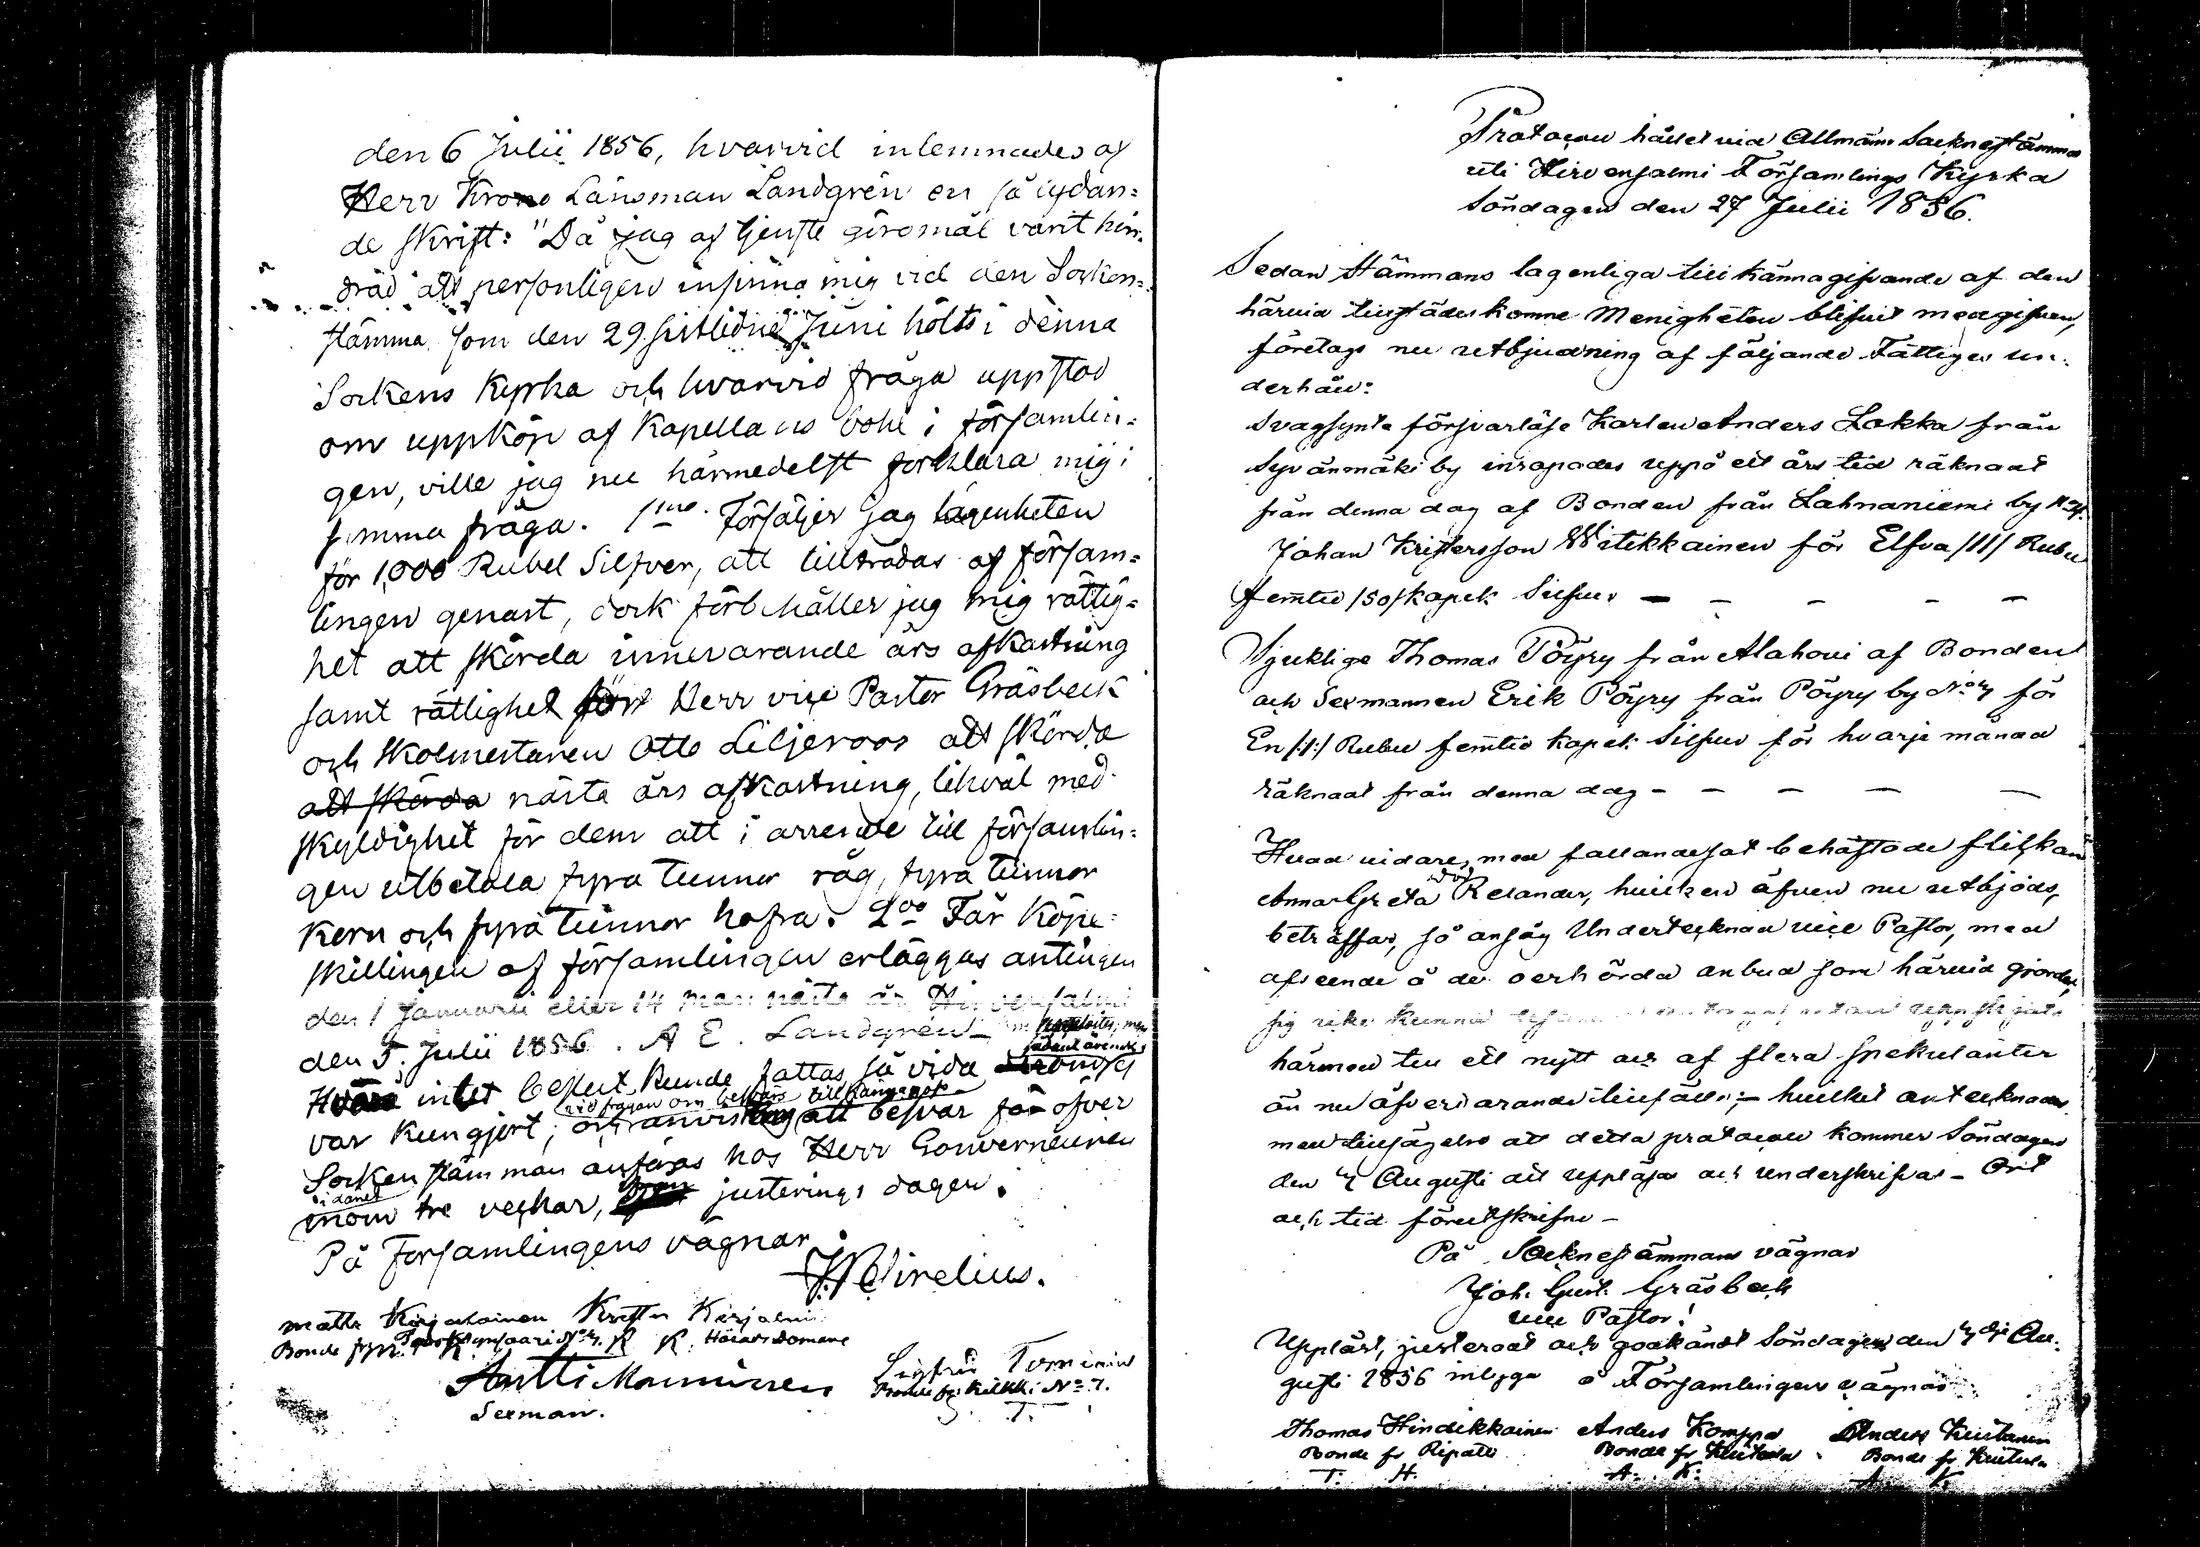 den 6 Julii 1856, hvarvid inlemnades af
Herr Krono Länsman Landgrén en så lydan=
de skrift: "Då jag af tjenste göromål varit hin=
drad att personligen infinna mig vid den Socken=
stämma som den 29 sistlidne Juni hölts i denna
Sockens Kyrka och hvarvid fråga uppstod
om uppköp af Kapellans bohl i församlin=
gen, ville jag nu härmedelst förklara mig i
samma fråga. 1mo. Försäljer jag lägenheten
för 1,000 Rubel Silfver, att tillträdas af försam=
lingen genast, dock förbehåller jag mig rättig=
het att skörda innevarande års afkastning
samt rättighet för Herr vice Pastor Gräsbeck
och Skolmestaren Otto Liljeroos att skörda
att skörda nästa års afkastning, likväl med
skyldighet för dem att i arrende till församlin=
gen utbetala fyra tunnor råg, fyra tunnor
korn och fyra tunnor hafra. 2do Får Köpe=
skillingen af församlingen erläggas antingen
den 1 Januarii eller 14 mars nästa år Hirvensalmi
den 5 Julii 1856. A E. Landgrén
inlet beslut kunde fattas så vida
sådant ärende
var kungjort, och att besvär öfver
vid frågan om besvärs
Sockenstämman anföras hos Herr Gouverneuren
inom tre veckar, från justerings dagen.
På Församlingens vägnar
Sirelius.
Matts Kirjalainen Krister Kirjalainen
Bonde K. K. Härads Domare
Antti Manninen Sigfrid Tominen
Sexman. Bonde fr. Kilkki No 7.
T.
Protocoll hållet vid Allmänn Socknestämma
uti Hirvensalmi Församlings Kyrka
Söndagen den 27 Julii 1856.
Sedan Stämmans lagenliga tillkännagifvande af den
härvid tillstädeskomne Menigheten blifvit medgifven,
företags nu utbjudning af följande Fattiges un=
derhåll:
Svagsynte försvarslöse Karlen Anders Lokka från
Syvänmäki by inropades uppå ett års tid räknadt
från denna dag af Bonden från Lahnaniemi by
Johan Kristersson Witikkainen för Elfva /11/ Rubel
femtio /50/ kopek Silfver — — — — —
Sjuklige Thomas Pöyry från Alahovi af Bonden
och Sexmannen Erik Pöyry från Pöyry by No 4 för
En /:1:/ Rubel femtio kopek Silfver för hvarje månad
räknadt från denna dag — — — — —
Hvad vidare, med fallandesot behäftade flickan
Anna Greta Relander, hvilken äfven nu utbjöds,
beträffar, så ansåg Undertecknad vice Pastor, med
afseende å de oerhörda anbud som härvid gjordes,
sig icke kunna utan uppskjuts
härmed till ett nytt och af flera spekulanter
än nu äfvervarande tillfälle; — hvilket antecknades
med tillsägelse att detta protocoll kommer Söndagen
den 4 Augusti att uppläsas och underskrifvas — Ort
och tid förutskrifne —
På Socknestämmans vägnar
Joh. Gust. Gräsbeck
vice Pastor!
Uppläst, justeradt och godkändt Söndagen den 4de Au=
gusti 1856 intyga å Församlingens vägnar
Thomas Hindikkainen Anders Komppa Anders Kuitunen
Bonde fr Ripatti Bonde fr Kuitula Bonde fr Kuitula
T. H. A. K. A. K.